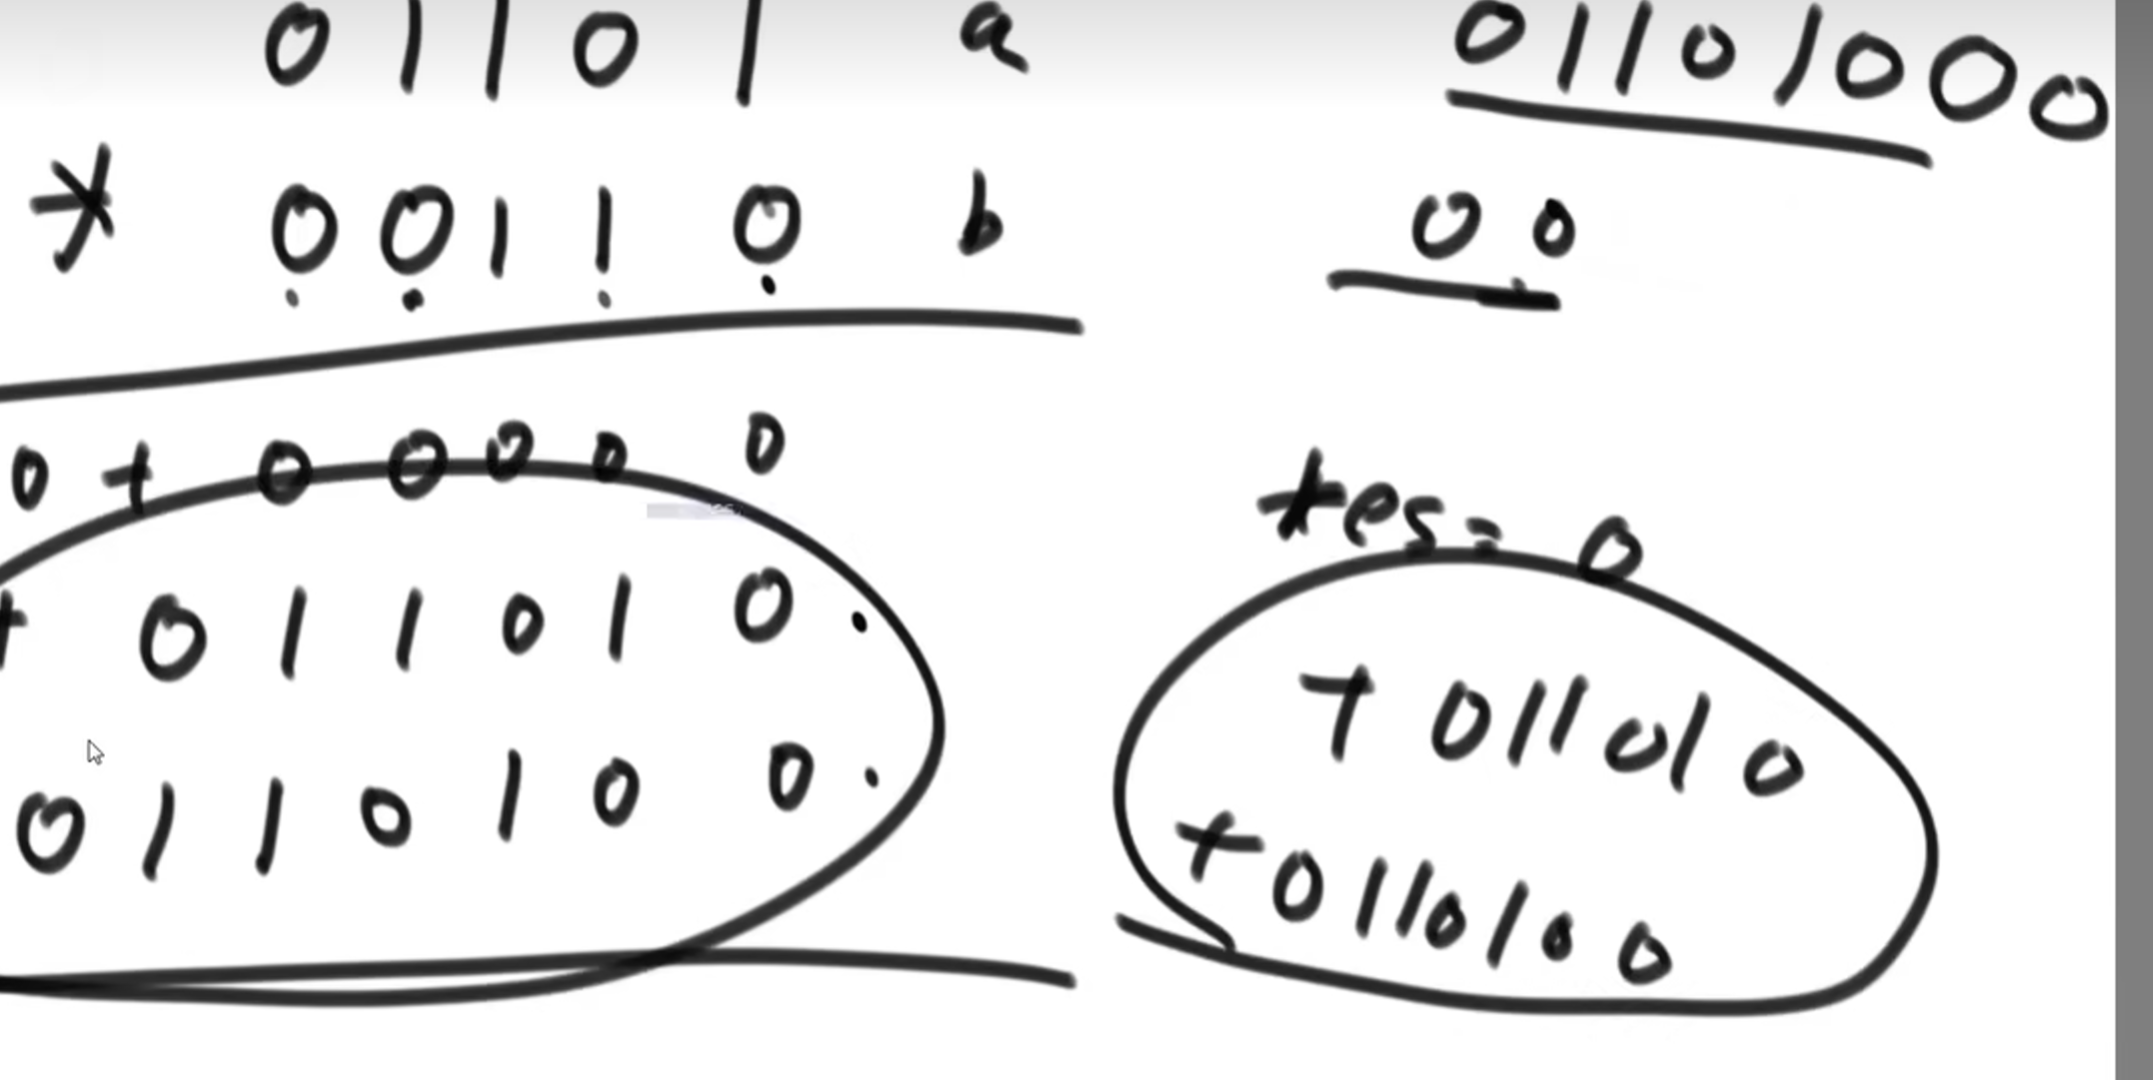 01101 a
* 00110 b
0 + 00000
+ 011010 .
0110100 .
01101000
00
res = 0
+ 011010
+ 0110100